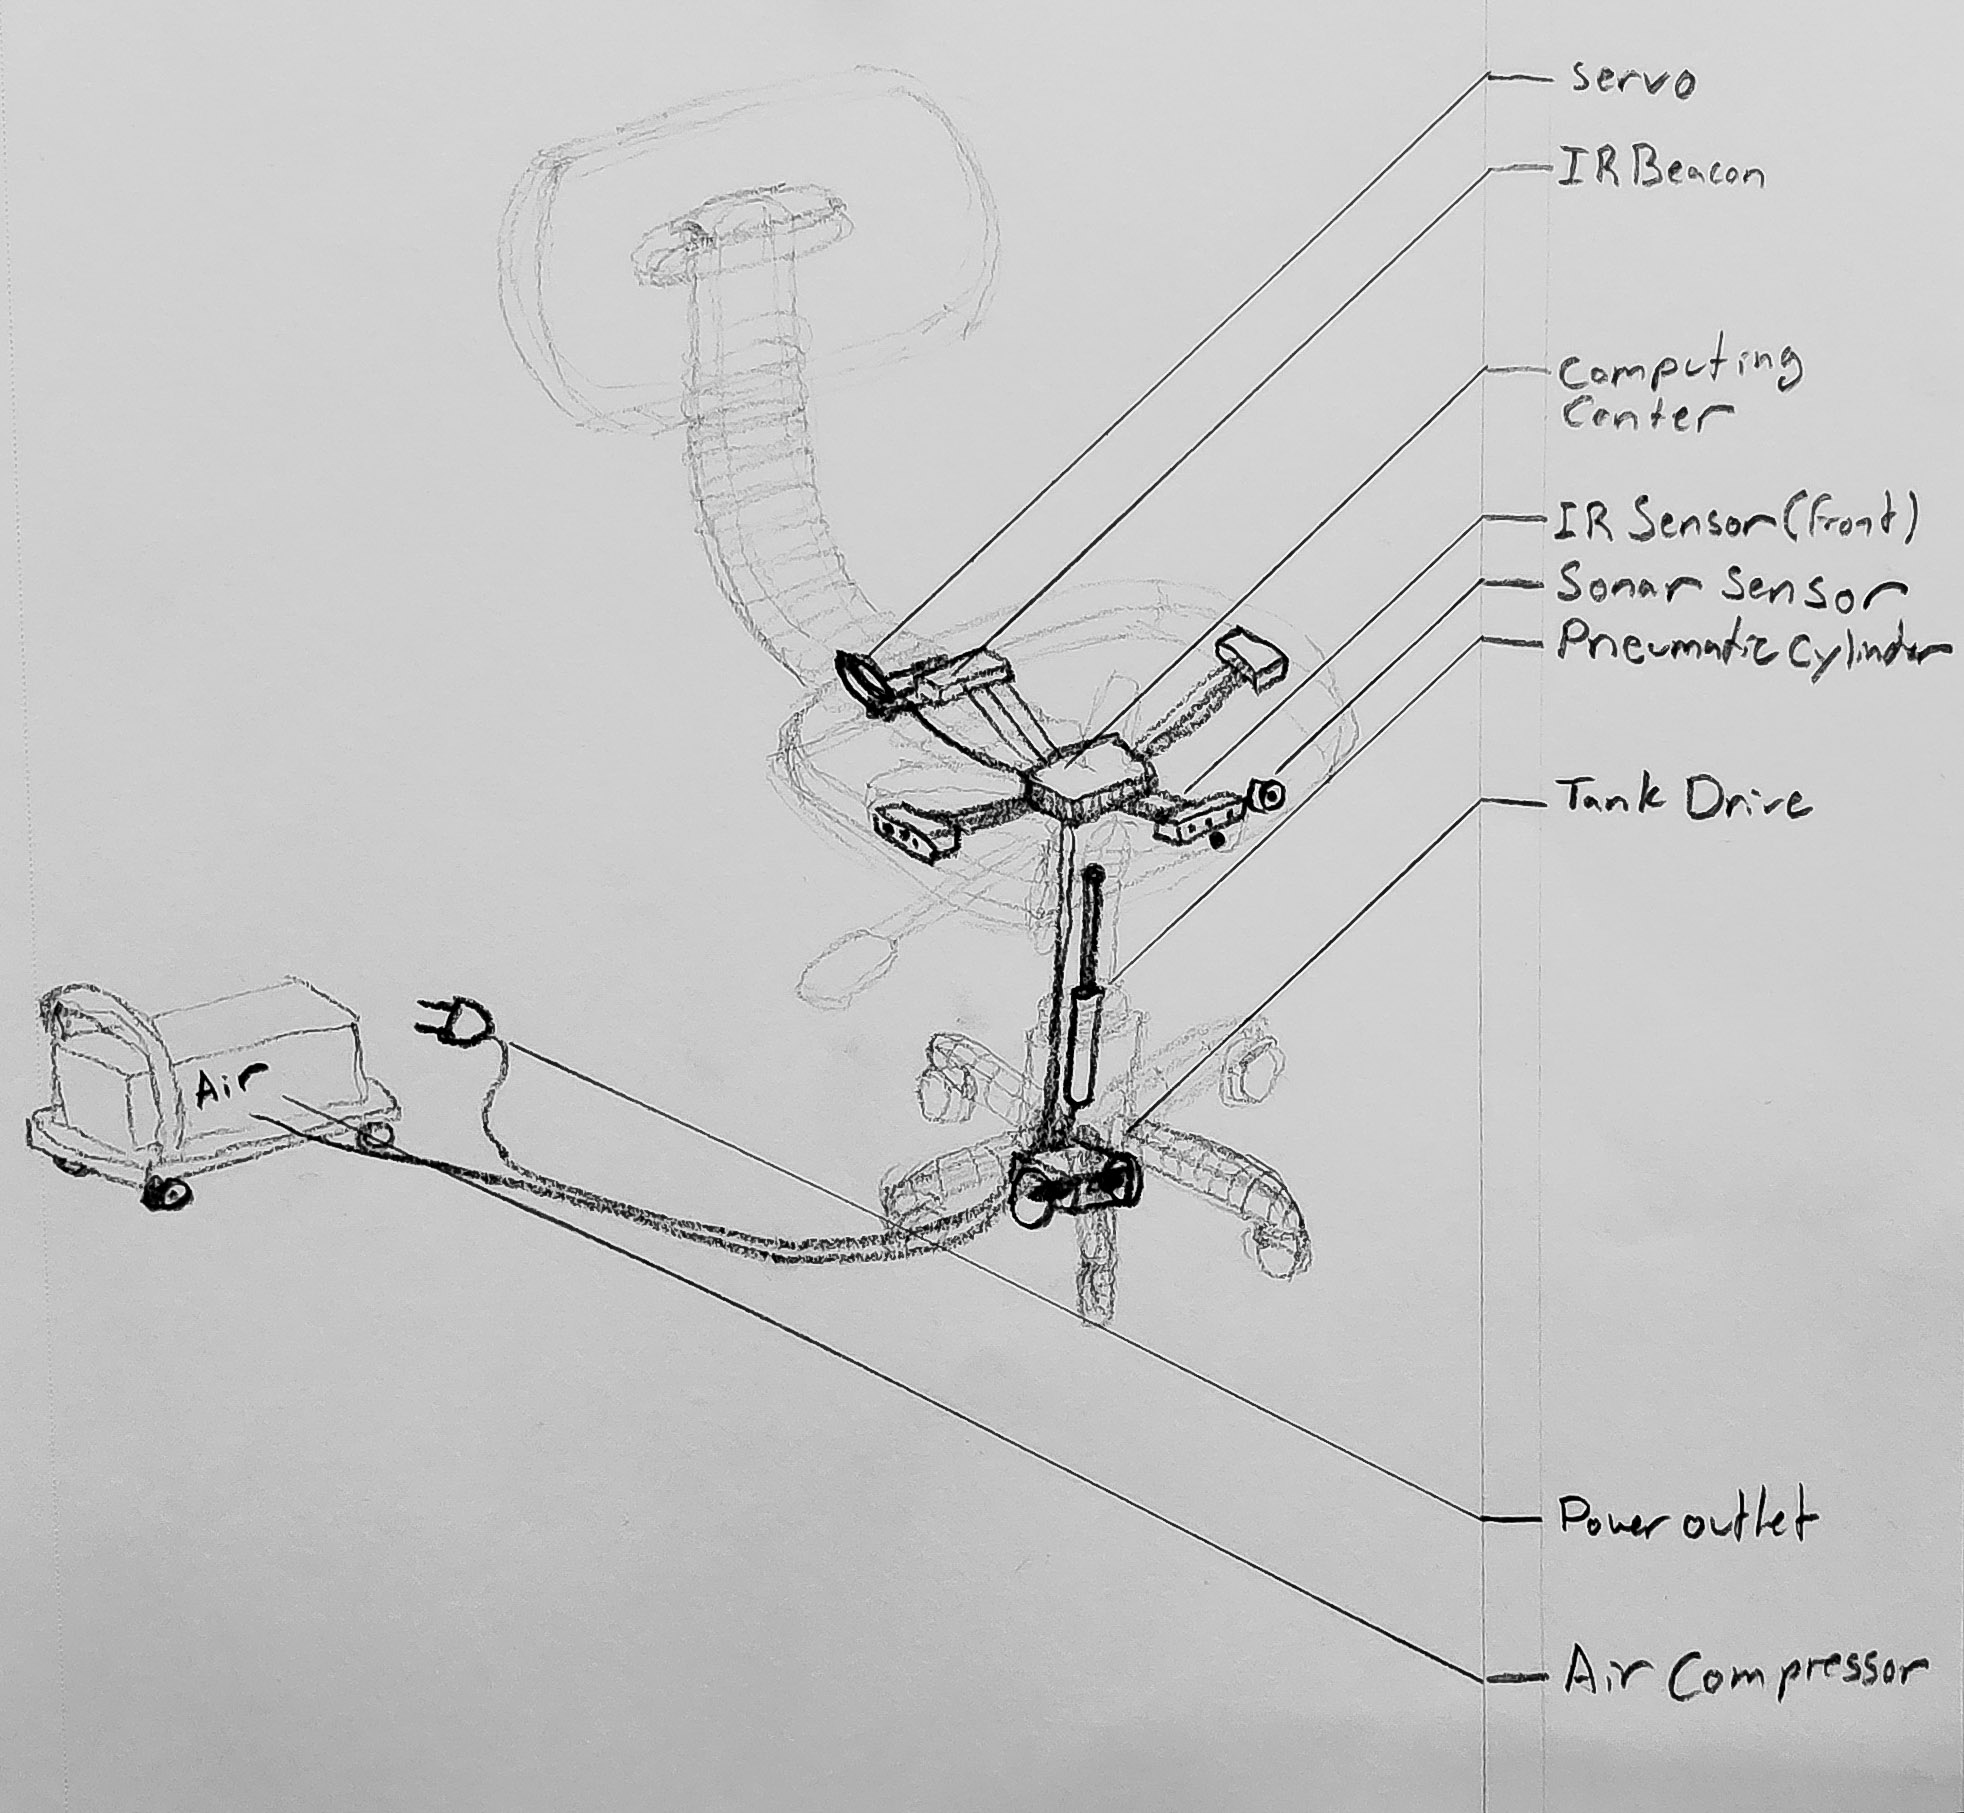 Servo
IR Beacon
Computing
Center
IR Sensor (front)
Sonar Sensor
Pneumatic Cylinder
Tank Drive
Air
Power outlet
Air Compressor